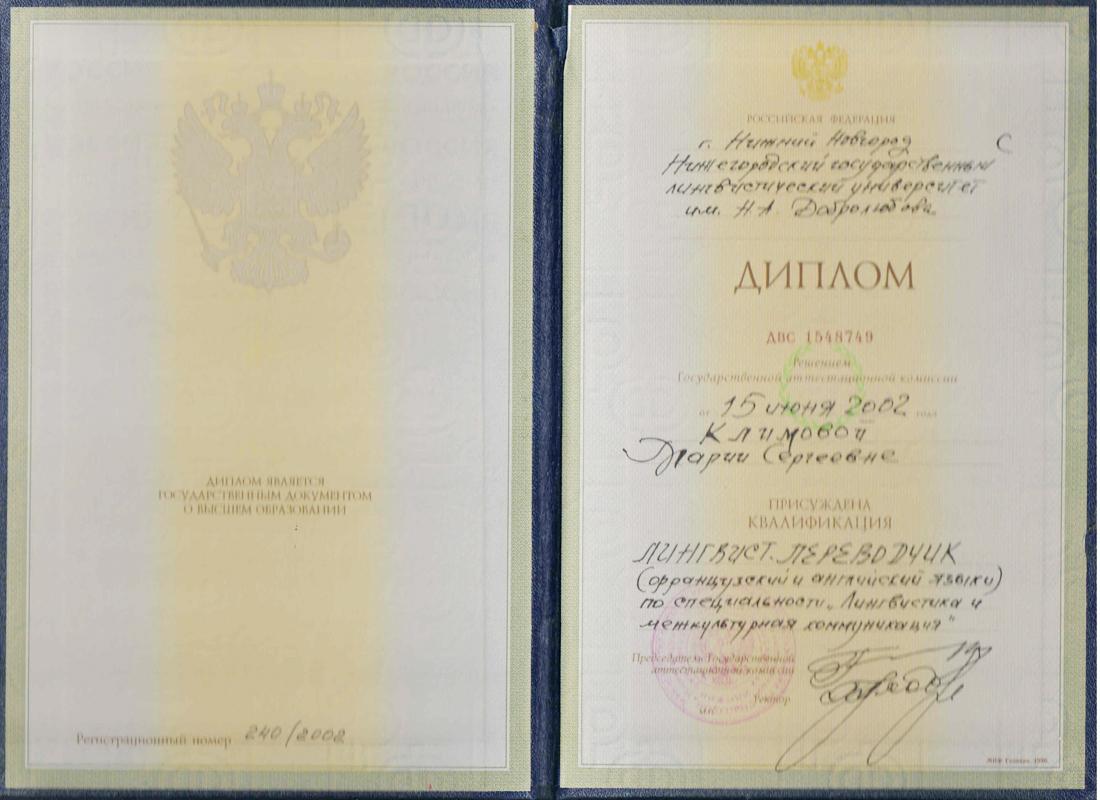 ДИПЛОМ ЯВЛЯЕТСЯ
ГОСУДАРСТВЕННЫМ ДОКУМЕНТОМ
О ВЫСШЕМ ОБРАЗОВАНИИ
Регистрационный номер 240/2002
РОССИЙСКАЯ ФЕДЕРАЦИЯ
г. Нижний Новгород
Нижегородский государственный
лингвистический университет
им. Н.А. Добролюбова
ДИПЛОМ
ДВС 1548749
Решением
Государственной аттестационной комиссии
от 15 июня 2002 года
Климовой
Дарии Сергеевне
ПРИСУЖДЕНА
КВАЛИФИКАЦИЯ
ЛИНГВИСТ. ПЕРЕВОДЧИК
(французский и английский языки)
по специальности „Лингвистика и
межкультурная коммуникация"
Председатель Государственной
аттестационной комиссии
Ректор